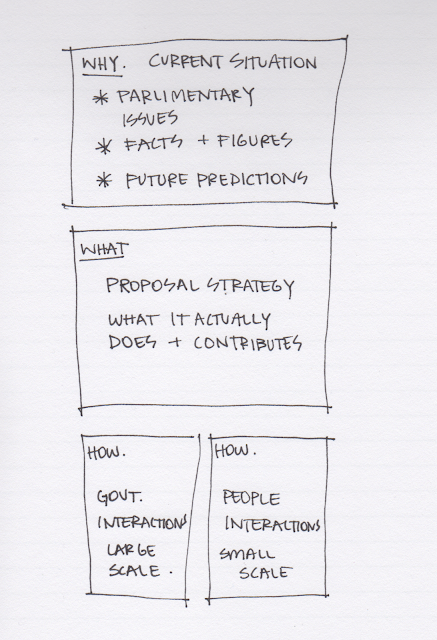 WHY. CURRENT SITUATION
* PARLIMENTARY
ISSUES
* FACTS + FIGURES
* FUTURE PREDICTIONS
WHAT
PROPOSAL STRATEGY
WHAT IT ACTUALLY
DOES + CONTRIBUTES
HOW.
GOVT.
INTERACTIONS
LARGE
SCALE.
HOW.
PEOPLE
INTERACTIONS
SMALL
SCALE